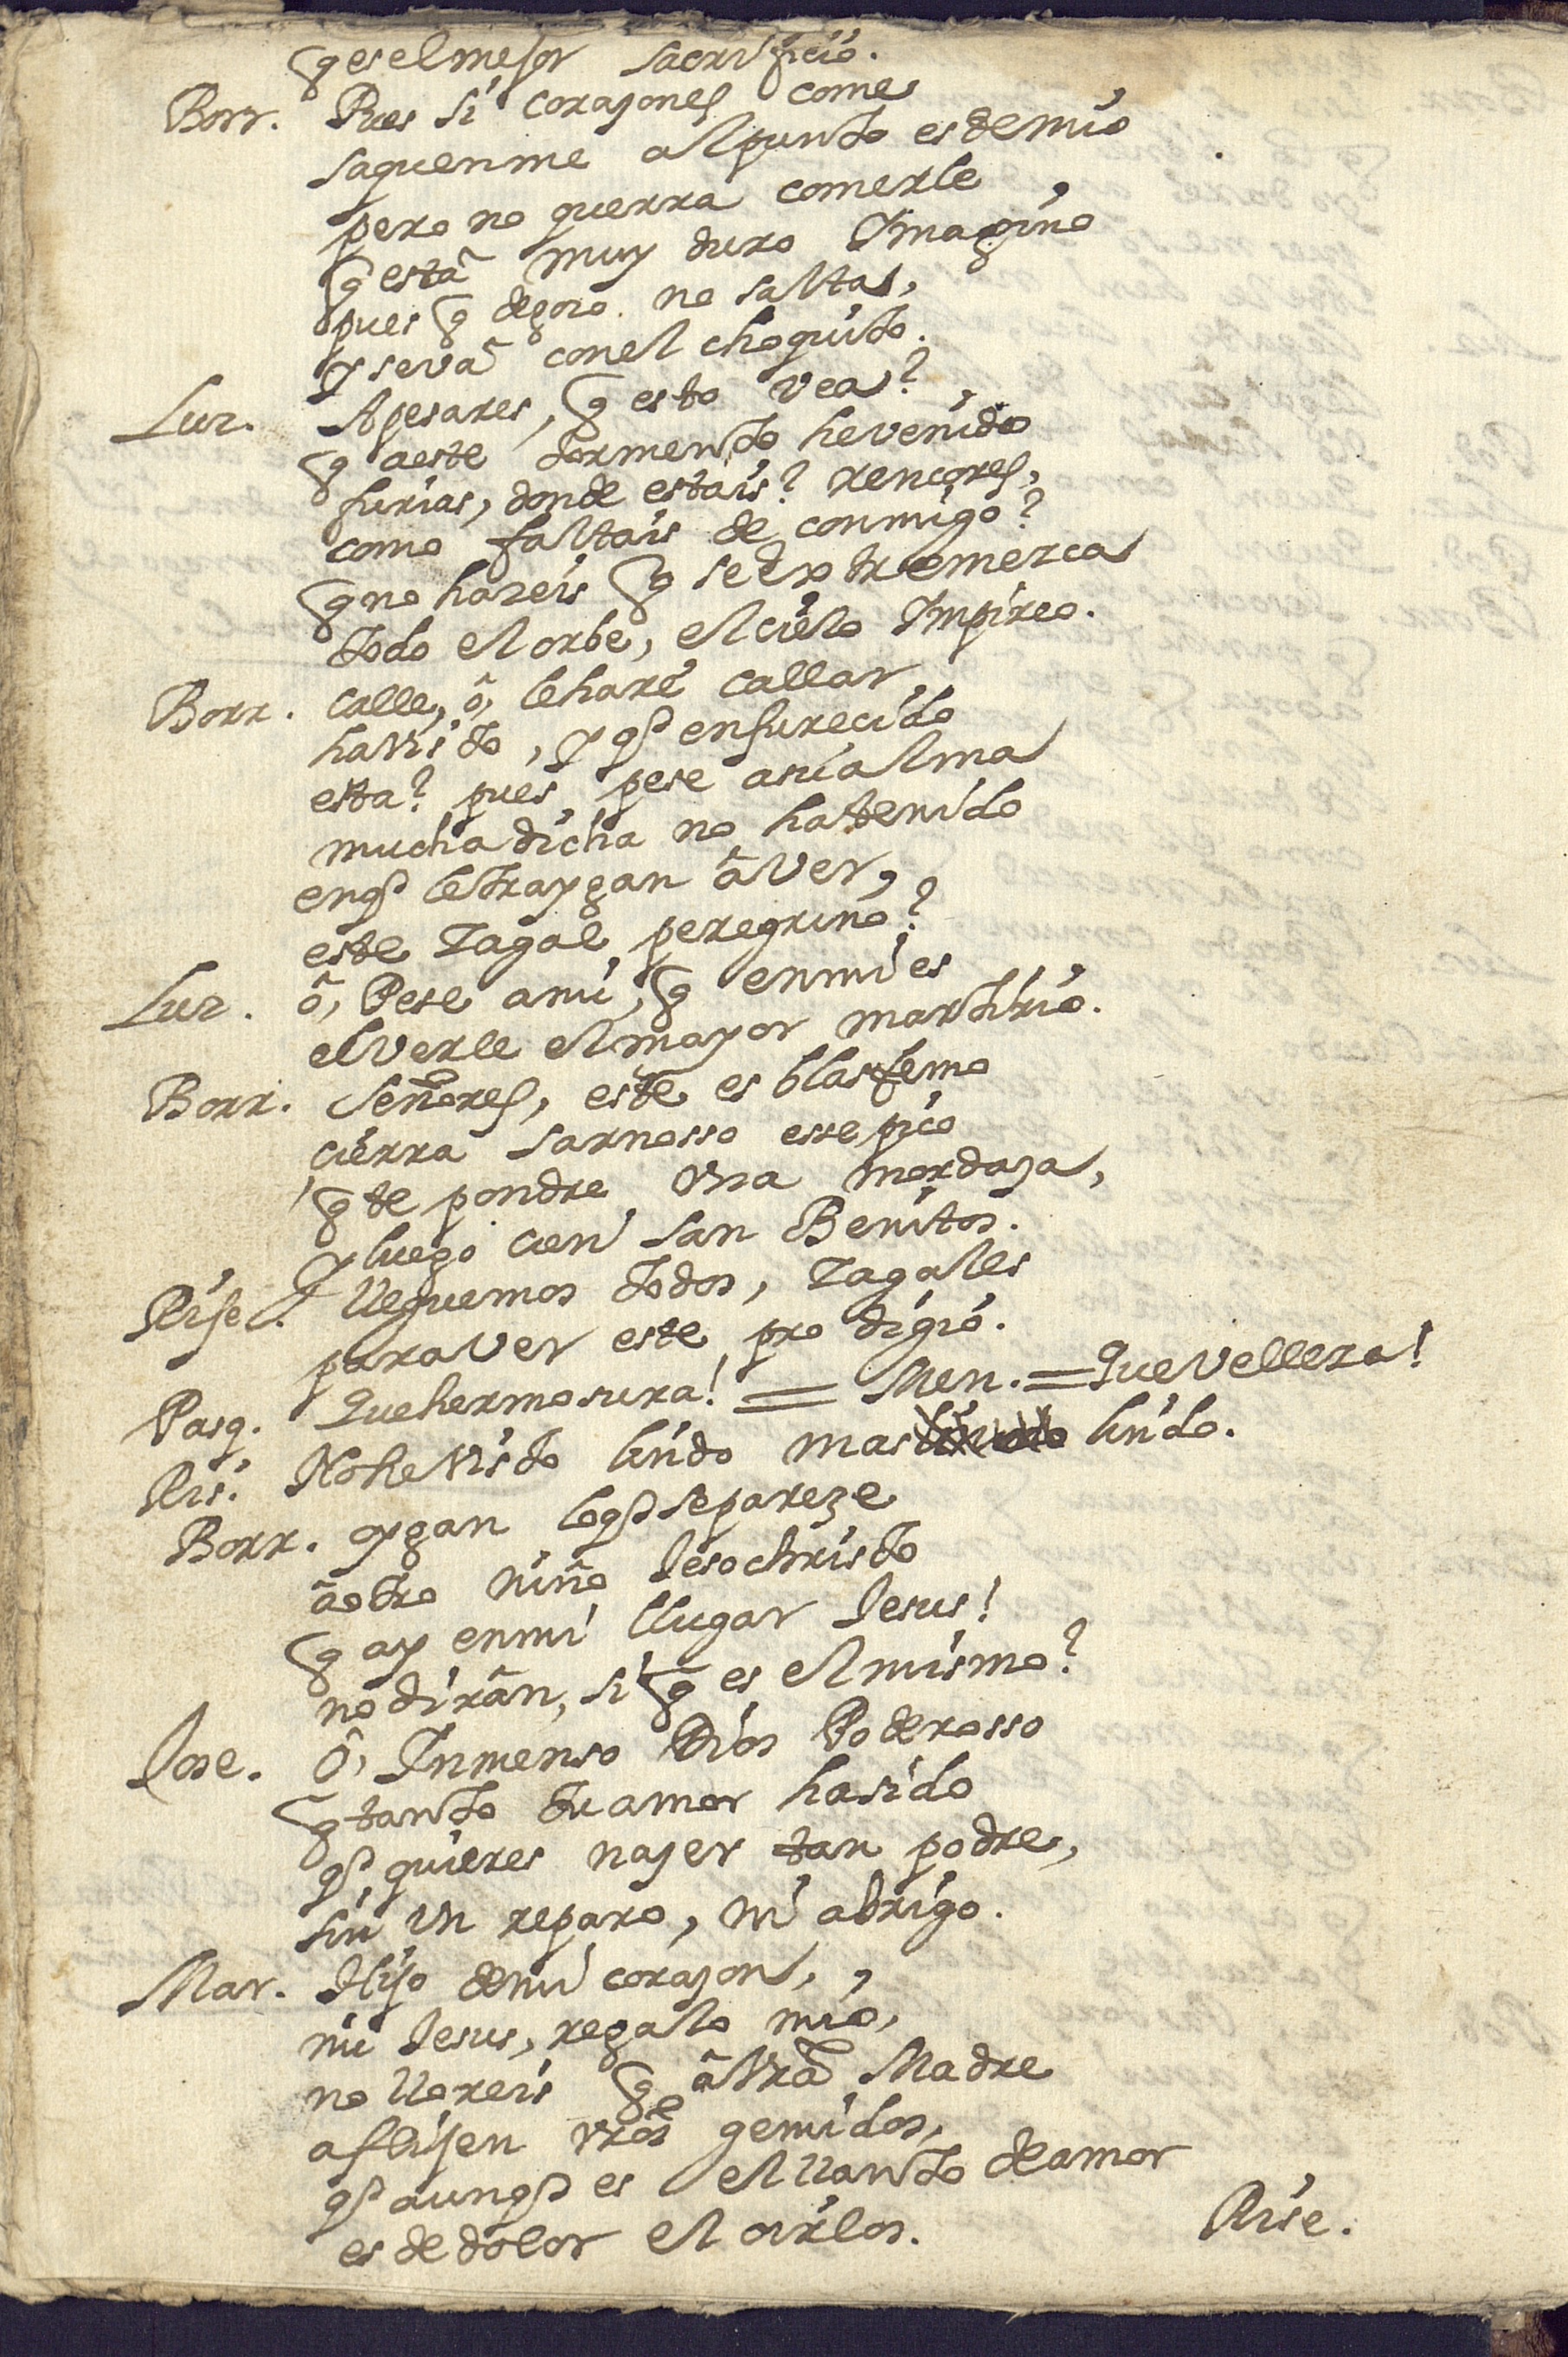 q̃ es el mejor sacrificio.
Borr. Pues si corazones come
saquenme al punto es de mio
pero no querra comerle
q̃ estâ muy duro Ymagino
pues q̃ de gozo no salta,
y se vâ con el choquito.
Luz. A pesares, q̃ esto vea?
q̃ a este tormento he venido
furias, donde estais? rencores,
como faltais de conmigo?
q̃ no hazeis q̃ se extremezca
todo el orbe, el cielo Ympireo.
Borr. Calle, ô, le haré callar,
ha visto, y q̃ enfurecido
esta? pues, pese a su alma
mucha dicha no ha tenido
en q̃ le traygan â ver,
este Zagal peregrino?
Luz. ô, Pese a mi, q̃ en mi es
el verle el mayor martirio.
Borr. Señores, este es blasfemo
cierra sarnosso esse pico
q̃ te pondre Una mordaza,
y luego cien San Benitos.
Risel. lleguemos todos, Zagales
para ver este prodigio.
Pasq. Que hermosura! = Men. = Que velleza!
Ris. No he visto lindo mas lindo.
Borr. oygan lo q̃ se pareze
â otro niño Jesochristo
q̃ ay en mi llugar Jesus!
no dirân, si q̃ es el mismo?
Jose. Ô, Inmenso Dios Poderosso
q̃ tanto tu amor ha sido
q̃ quieres nazer tan podre,
sin Un reparo, ni abrigo.
Mar. Hijo de mi corazon,
mi Jesus, regalo mio,
no lloreis q̃ â Vra Madre
aflijen vros gemidos,
q̃ aunq̃ es el llanto de amor
es de dolor el oirlos.
Rise.